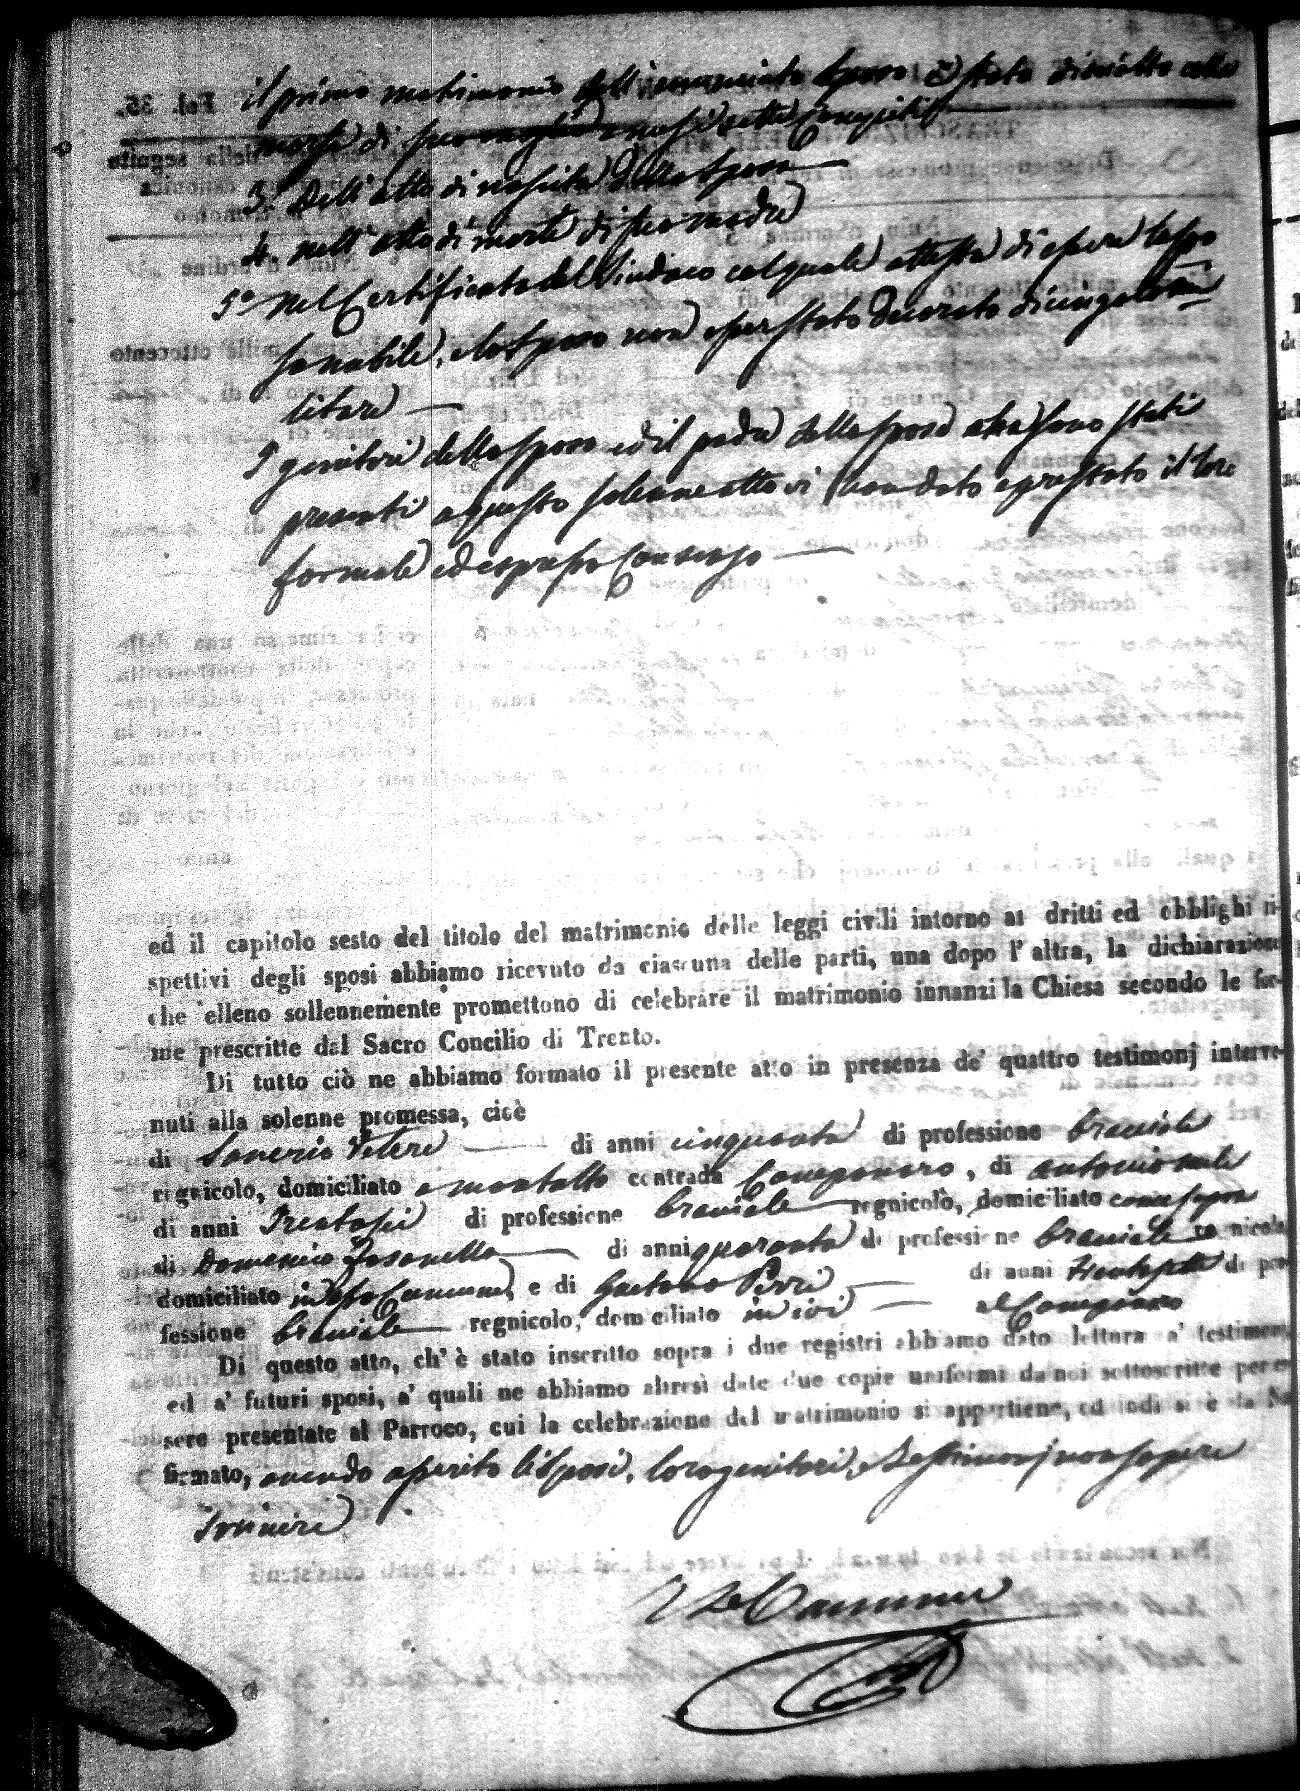 il primo matrimonio dell'enunciato sposo è stato disciolto colla
morte di sua moglie
3.° Dell'atto di nascita della sposa
4. nell'atto di morte di sua madre
5.° Nel Certificato del Sindaco col quale attesta di essere la spo
sa nubile, e lo sposo non esser stato decorato di
litare
I genitori dello sposo ed il padre della sposa sono stati
presenti a questo solenne atto vi han dato e prestato il loro
formale ed espresso consenso
ed il capitolo sesto del titolo del matrimonio delle leggi civili intorno ai dritti ed obblighi ri-
spettivi degli sposi abbiamo ricevuto da ciascuna delle parti, una dopo l'altra, la dichiarazione
che elleno sollennemente promettono di celebrare il matrimonio innanzi la Chiesa secondo le for-
me prescritte dal Sacro Concilio di Trento.
Di tutto ciò ne abbiamo formato il presente atto in presenza de' quattro testimonj interve-
nuti alla solenne promessa, cioè
di Saverio Vetere di anni cinquanta di professione braciale
regnicolo, domiciliato a montalto contrada , di antonio
di anni Trentasei di professione braciale regnicolo, domiciliato come sopra
di Domenico Fasanella di anni quaranta di professione braciale regnicolo
domiciliato in detto Comune, e di Gaetano Porri di anni di pro
fessione braciale regnicolo, domiciliato in ivi
Di questo atto, ch'è stato inscritto sopra i due registri abbiamo dato lettura a' testimonj
ed a' futuri sposi, a' quali ne abbiamo altresì date due copie uniformi da noi sottoscritte per es
sere presentate al Parroco, cui la celebrazione del matrimonio si appartiene, ed indi si è da Noi
firmato, avendo asserito li sposi, loro genitori, e testimonj non sapere
scrivere